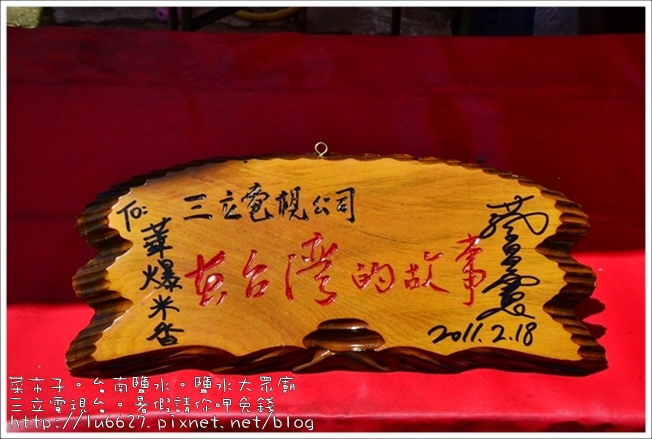 To:
三立電視公司
華爆米香
在台灣的故事
2011.2.18
菜市子。台南鹽水。鹽水大眾廟
三立電視台。暑假請你呷免錢
http://lu6627.pixnet.net/blog